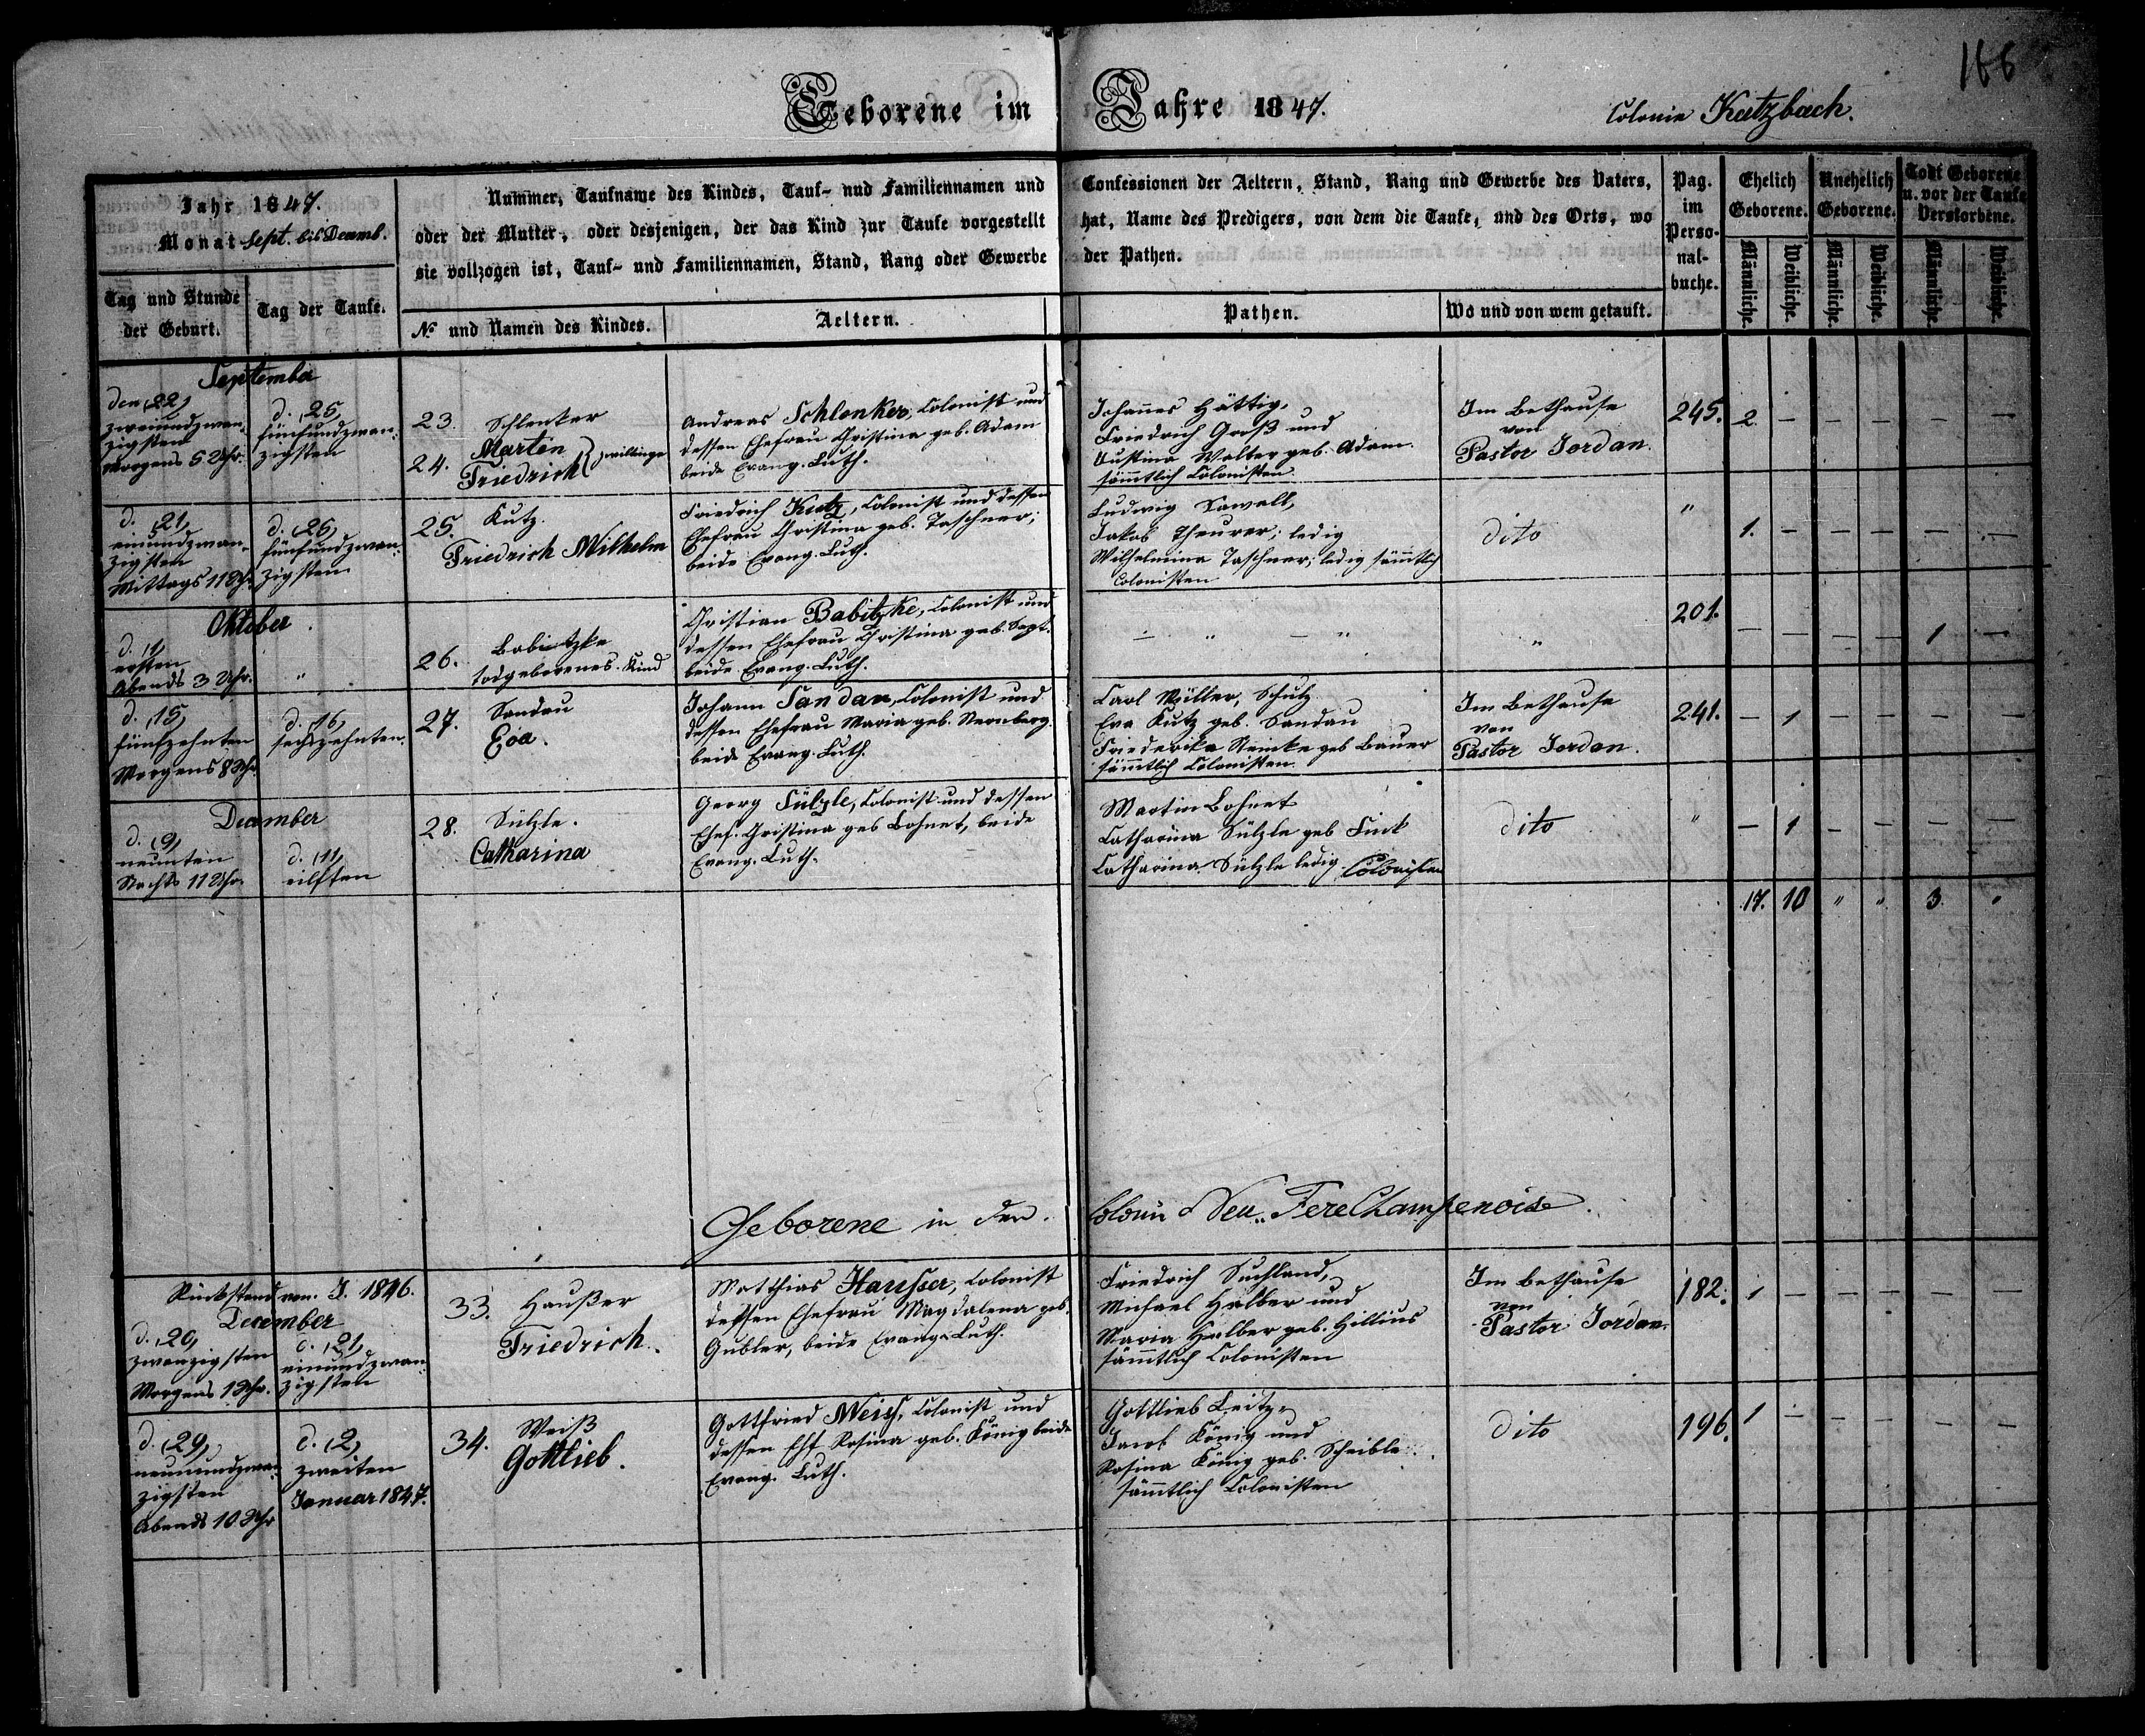 166
Geborene im Jahre 1847.
Colonie Katzbach.
Jahr 1847.
Monat Sept. bis Decemb.
Tag und Stunde der Geburt.
Tag der Taufe.
Nummer, Taufname des Kindes, Tauf- und Familiennamen und Confessionen der Aeltern, Stand, Rang und Gewerbe des Vaters,
oder der Mutter, oder desjenigen, der das Kind zur Taufe vorgestellt hat, Name des Predigers, von dem die Taufe, und des Orts, wo
sie vollzogen ist, Tauf- und Familiennamen, Stand, Rang oder Gewerbe der Pathen.
№ und Namen des Kindes.
Aeltern.
Pathen.
Wo und von wem getauft.
Pag. im Perso-nal-buche.
Ehelich Geborene.
Unehelich Geborene.
Todt Geborene u. vor der Taufe Verstorbene.
Männliche. Weibliche. Männliche. Weibliche. Männliche. Weibliche.
September
den (22)
zweiundzwan-
zigsten
Morgens 5 Uhr.
d. (25)
fünfundzwan-
zigsten
23. Schlenker
Martin
24. Friedrich } Zwillinge
Andreas Schlenker, Colonist und
dessen Ehefrau Christina geb. Adam
beide Evang. Luth.
Johannes Hättig,
Friedrich Groß und
Justina Walter geb. Adam
sämtlich Colonisten
Im Bethause
von
Pastor Jordan.
245. 2 — — — — —
d. (21)
einundzwan-
zigsten
Mittags 11 Uhr
d. (25)
fünfundzwan-
zigsten
25. Kutz.
Friedrich Wilhelm
Friedrich Kutz, Colonist und dessen
Ehefrau Christina geb. Taschner;
beide Evang. Luth.
Ludwig Sawall,
Jakob Theurer; ledig
Wilhelmina Taschner; ledig sämtlich
Colonisten
dito
" 1. — — — — —
Oktober
d. (1)
ersten
Abends 3 Uhr.
"
26. Babitzke
todgeborenes Kind
Christian Babitzke, Colonist und
dessen Ehefrau Christina geb. Sept.
beide Evang. Luth.
— " — "
"
201. — — — — 1 —
d. (15)
fünfzehnten
Morgens 8 Uhr
d. (16)
sechzehnten.
27. Sandau
Eva.
Johann Sandau, Colonist und
dessen Ehefrau Maria geb. Sternberg.
beide Evang. Luth.
Carl Müller, Schulz
Eva Kutz geb. Sandau
Friederika Steinke geb Bauer
sämtlich Colonisten.
Im Bethause
von
Pastor Jordan.
241. — 1 — — — —
December
d. (9)
neunten
Nachts 11 Uhr.
d. (11)
eilften
28. Sülzle.
Catharina
Georg Sülzle, Colonist und dessen
Ehef. Christina geb Bohnet, beide
Evang. Luth.
Martin Bohnet
Catharina Sülzle geb Fink
Catharina Sülzle ledig. Colonisten
dito
" — 1 — — — —
17. 10 " " 3. "
Geborene in der Colonie Neu-FereChampenoise.
Rückstand vom J. 1846.
December
d. (20)
zwanzigsten
Morgens 1 Uhr.
d. (21)
einundzwan-
zigsten
33. Haußer
Friedrich.
Matthias Hausser, Colonist
dessen Ehefrau Magdalena geb.
Gubler, beide Evang. Luth.
Friedrich Suchland,
Michael Halber und
Maria Halber geb. Hillius
sämmtlich Colonisten
Im Bethause
von
Pastor Jordan.
182. 1 — — — — —
d. (29)
neunundzwan-
zigsten
Abends 10 Uhr
d. (2)
zweiten
Januar 1847.
34. Weiß
Gottlieb.
Gottfried Weiss, Colonist und
dessen Ehf Rosina geb. König beide
Evang. Luth.
Gottlieb Leitz,
Jacob König und
Rosina König geb. Scheible
sämmtlich Colonisten
dito
196. 1 — — — — —